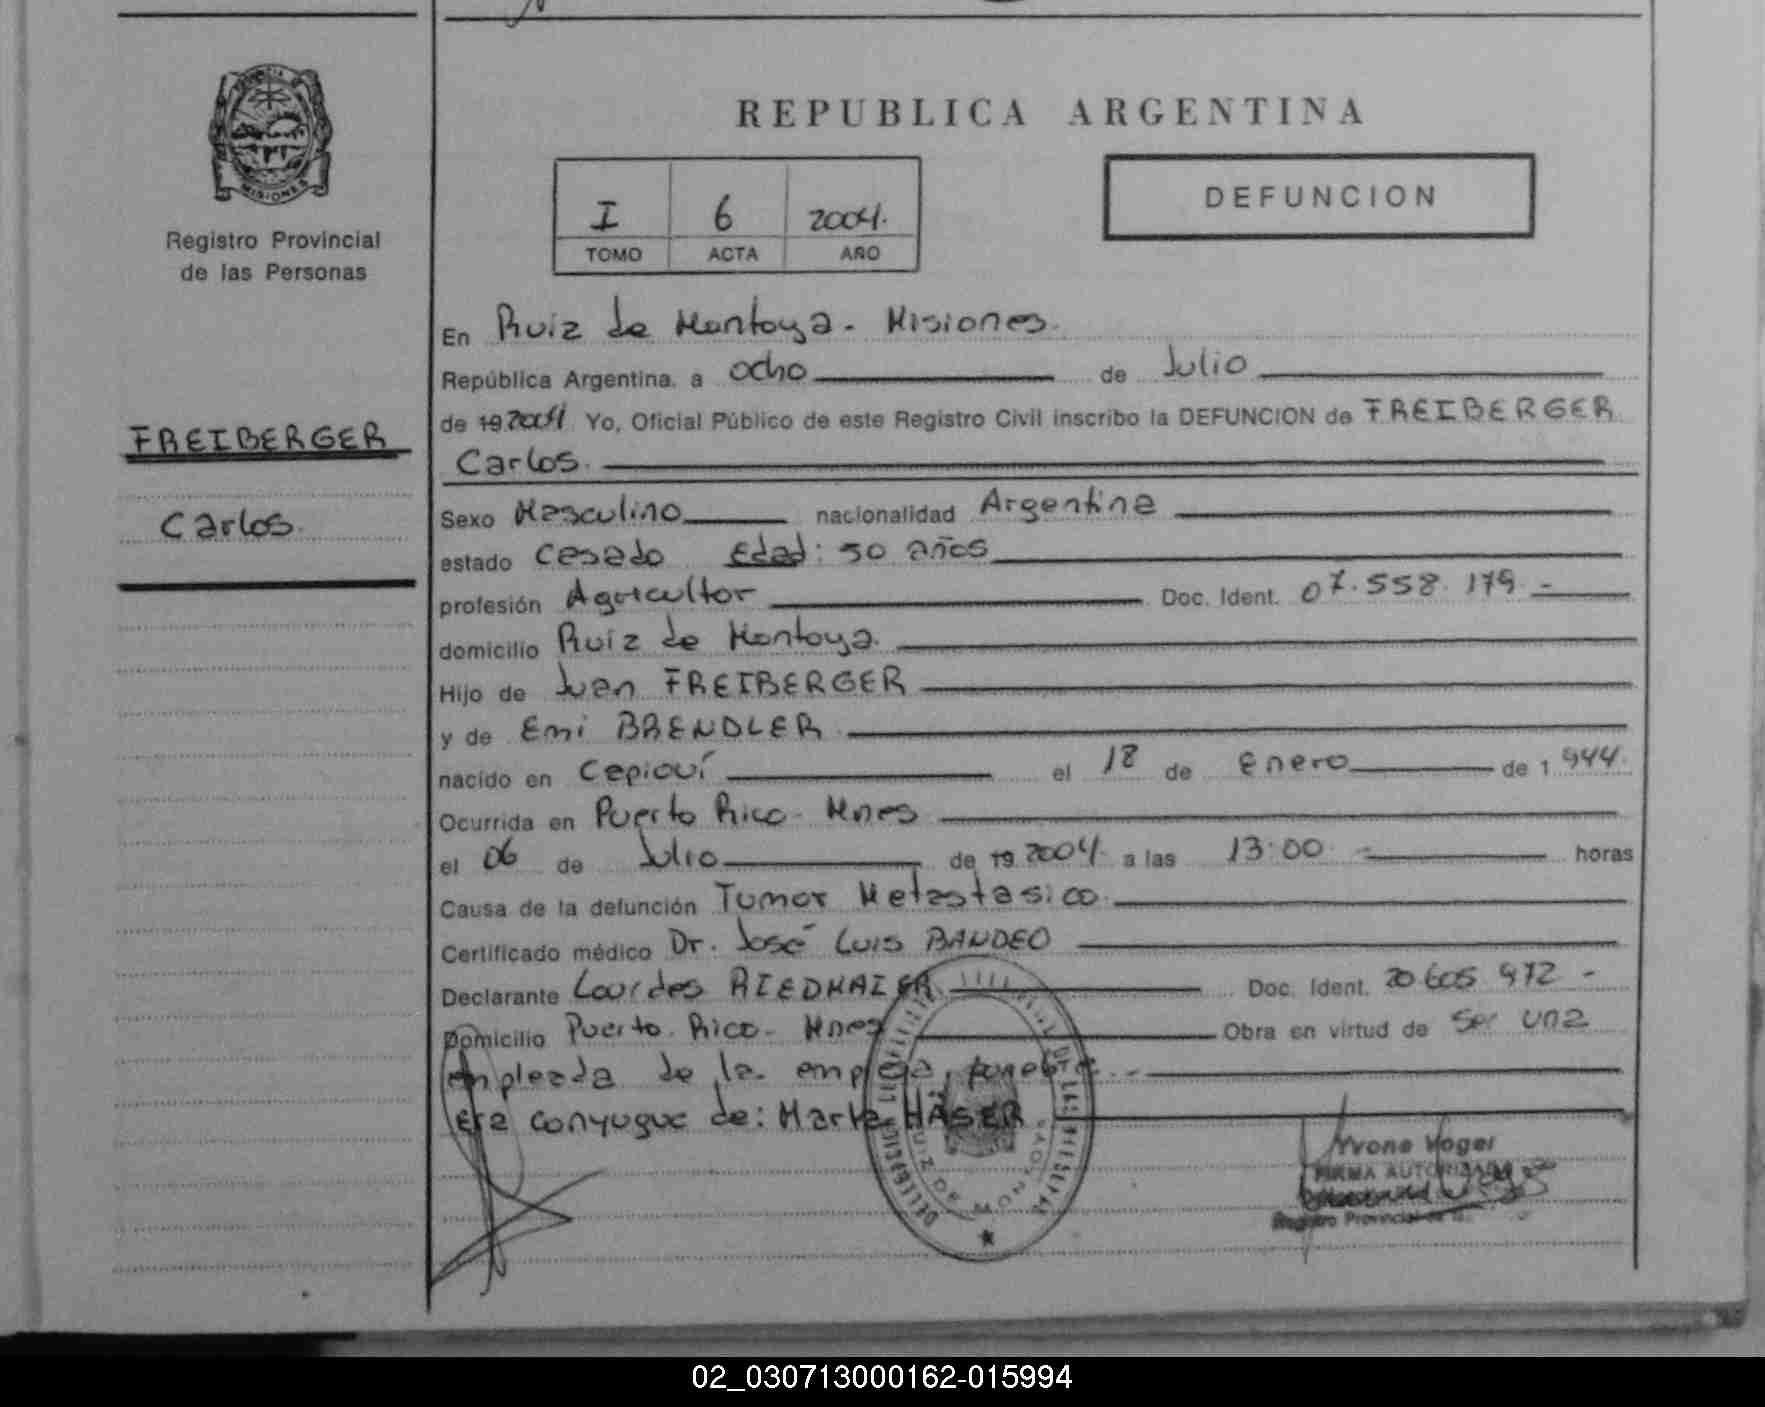 REPUBLICA ARGENTINA
PROVINCIA DE
MISIONES
Registro Provincial
de las Personas
I 6 2004.
TOMO ACTA AÑO
DEFUNCION
FREIBERGER
Carlos.
En Ruiz de Montoya. Misiones.
República Argentina, a ocho de Julio
de 19 2004 Yo, Oficial Público de este Registro Civil inscribo la DEFUNCION de FREIBERGER
Carlos.
Sexo Masculino nacionalidad Argentina
estado Casado Edad: 50 años
profesión Agricultor Doc. Ident. 07.558.179.-
domicilio Ruiz de Montoya.
Hijo de Juan FREIBERGER
y de Emi BRENDLER
nacido en Capioví el 18 de Enero de 1 944.
Ocurrida en Puerto Rico- Mnes
el 06 de Julio de 19 2004. a las 13:00.- horas
Causa de la defunción Tumor Metastasico.
Certificado médico Dr. José Luis BANDEO
Declarante Lourdes RIEDMAIER Doc. Ident. 20 605 972 -
Domicilio Puerto Rico- Mnes Obra en virtud de Ser una
empleada de la empresa funebre.-
Era conyugue de: Marta HÄSER
RUIZ DE MONTOYA
Yvone Vogel
FIRMA AUTORIZADA
Registro Provincial de
02_030713000162-015994